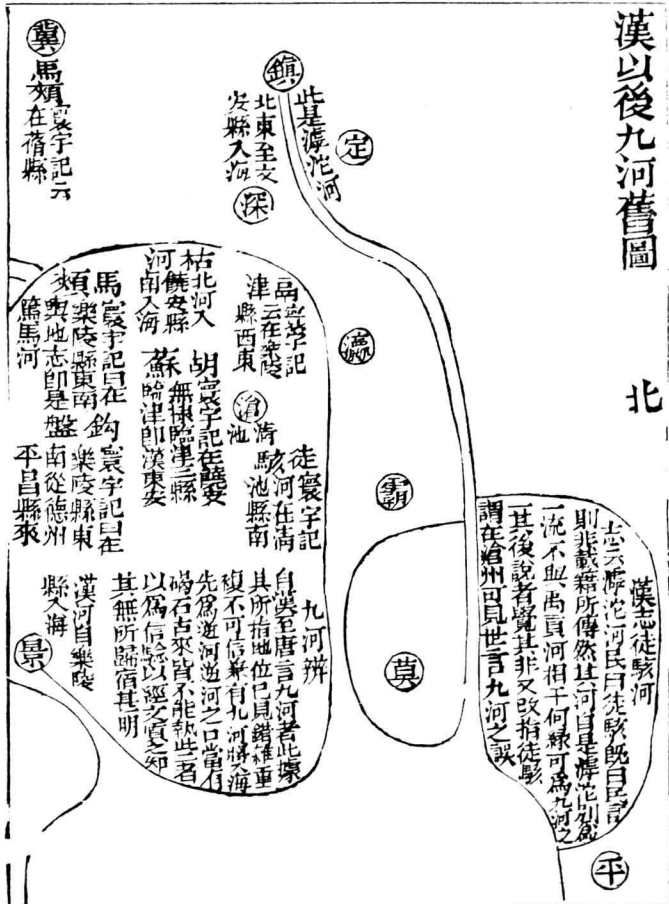 漢以後九河舊圖
北
漢志徒駭河
志云滹沱河民曰徒駭既曰民言
則非載籍所傳然其河自是滹沱別爲
一流不與禹貢河相干何緣可爲九河之
一其後說者覺其非又改指徒駭
謂在滄州可見世言九河之誤
平
定
鎮
此是滹沱河
北東至文
安縣入海
深
瀛
霸
莫
鬲寰宇記
津云在樂陵
縣西東
滄
清
池
徒寰宇記
駭河在清
池縣南
枯北河入
河饒安縣
南入海
胡寰宇記在饒安
無棣臨津三縣
蘇臨津即漢東安
馬寰宇記曰在
頰樂陵縣東南
輿地志即是
篤馬河
鈎寰宇記曰在
盤樂陵縣東
南從德州
平昌縣來
九河辨
自漢至唐言九河者此據
其所指地位已見錯雜重
複不可信兼有九河將入海
先爲逆河逆河之口當有
碣石古來皆不能執此二者
以爲信驗以經文質之知
其無所歸宿甚明
漢河自樂陵
縣入海
景
冀
馬頰寰宇記云
在蓨縣